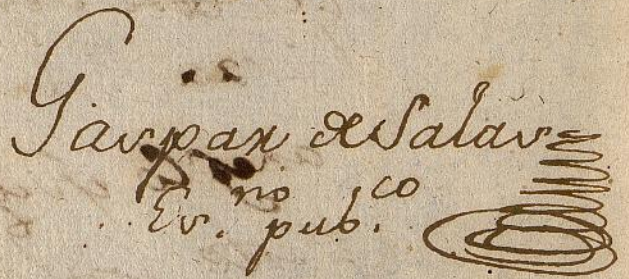 Gaspar de Salas
Es.no pub.co